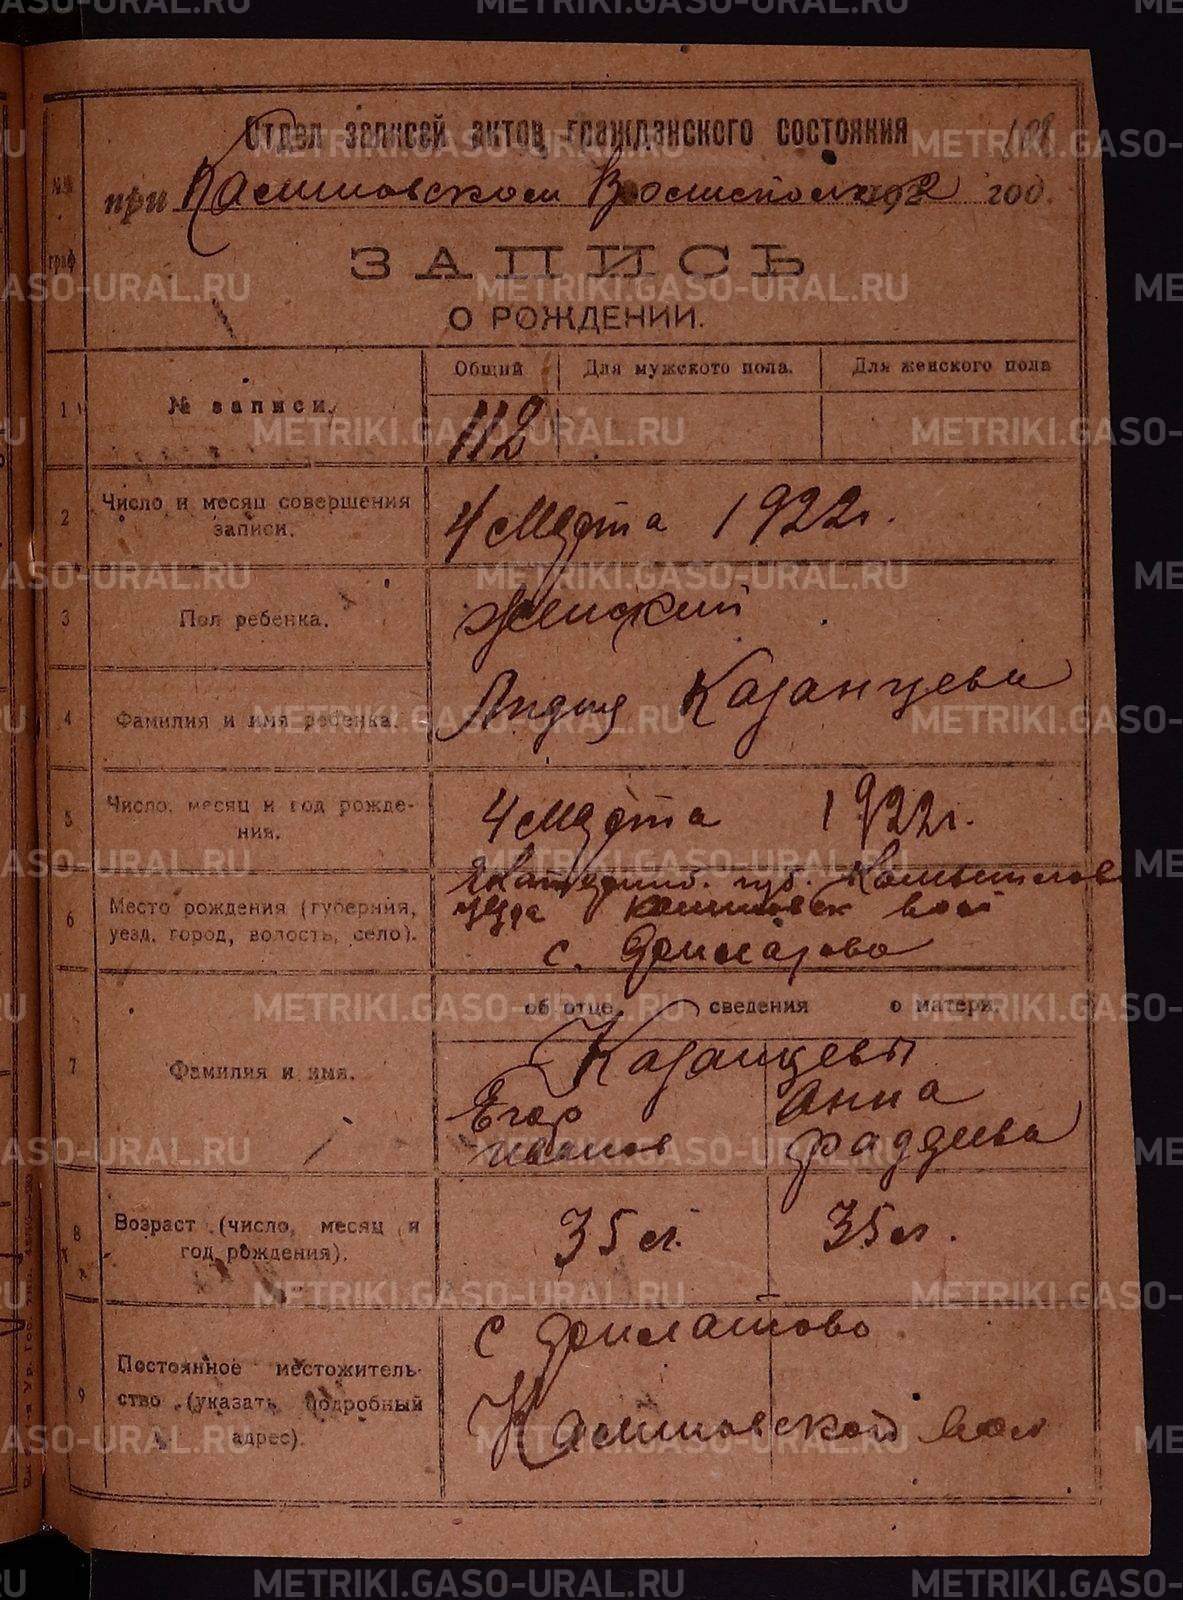 METRIKI.GASO-URAL.RU
108
Отдел записей актов гражданского состояния
при Касмиловском Волисполк 1922 год.
№№ граф.
ЗАПИСЬ
О РОЖДЕНИИ.
Общий Для мужского пола. Для женского пола
1 № записи. 112
2 Число и месяц совершения записи. 4 Марта 1922 г.
3 Пол ребенка. Женский
4 Фамилия и имя ребенка. Казанцева
5 Число, месяц и год рождения. 4 Марта 1922 г.
6 Место рождения (губерния, уезд, город, волость, село). Екатеринб. губ. Камышлов
уезда вол
с.
об отце сведения о матери.
7 Фамилия и имя. Казанцевы
Егор Анна
Иванов Фаддеева
8 Возраст (число, месяц и год рождения). 35 л. 35 л.
9 Постоянное местожительство (указать подробный адрес). с
вол